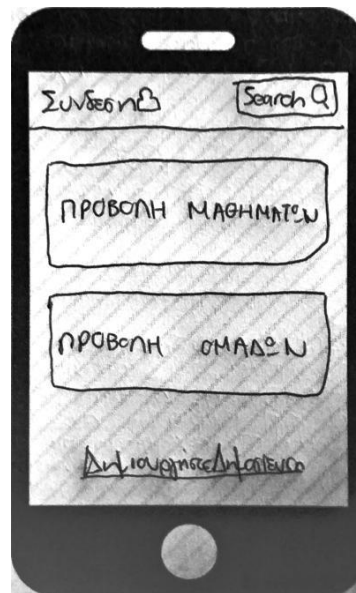 Σύνδεση Search
ΠΡΟΒΟΛΗ ΜΑΘΗΜΑΤΩΝ
ΠΡΟΒΟΛΗ ΟΜΑΔΩΝ
Δημιουργήστε Δημοσίευση